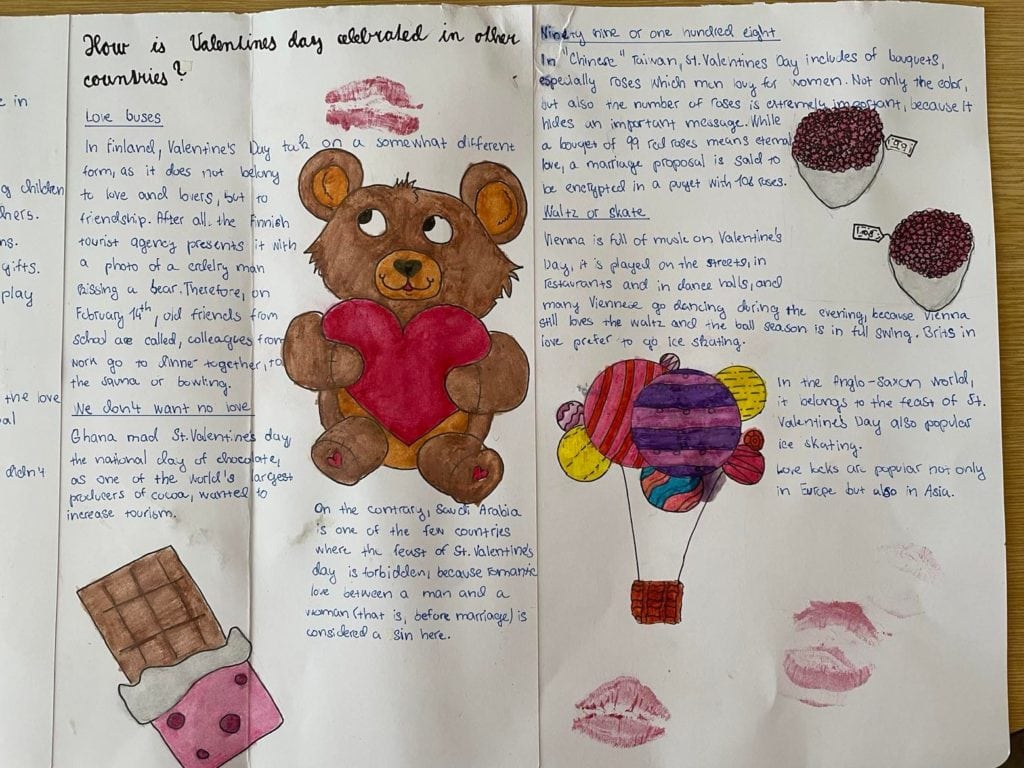 e in
g children
hers.
ns.
gifts.
play
the love
al
didn't
How is Valentines day celebrated in other
countries?
Love buses
In Finland, Valentine's Day take on a somewhat different
form, as it does not belong
to love and lovers, but to
friendship. After all, the Finnish
tourist agency presents it with
a photo of a
man
kissing a bear. Therefore, on
February 14th, old friends from
school are called, colleagues from
work go to dinner together, to
the sauna or bowling.
We don't want no love
Ghana mad St. Valentine's day
the national day of chocolate,
as one of the world's largest
producers of cocoa, wanted to
increase tourism.
On the contrary, Saudi Arabia
is one of the few countries
where the feast of St. Valentine's
day is forbidden, because romantic
love between a man and a
woman (that is, before marriage) is
considered a sin here.
Ninety nine or one hundred eight
In "Chinese" Taiwan, St. Valentines Day includes of bouquets,
especially roses which men buy for women. Not only the color,
but also the number of roses is extremely important, because it
hides an important message. While
a bouqet of 99 red roses means eternal
love, a marriage proposal is said to
be encrypted in a puget with 108 roses.
99!
108!
Waltz or skate
Vienna is full of music on Valentine's
Day, it is played on the streets, in
restaurants and in dance halls, and
many Viennese go dancing during the evening, because Vienna
still loves the waltz and the ball season is in full swing. Brits in
love prefer to go ice skating.
In the Anglo-Saxon world,
it belongs to the feast of St.
Valentine's Day also popular
ice skating.
Love locks are popular not only
in Europe but also in Asia.